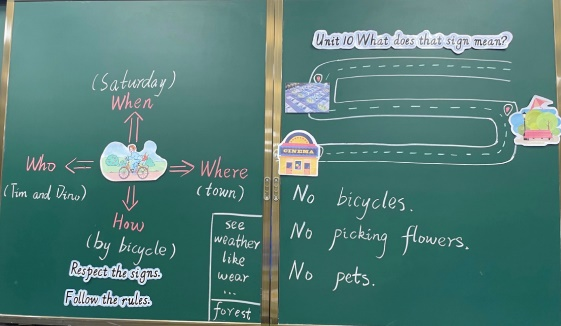 (Saturday)
When
Who
(Tim and Dino)
Where
(town)
How
(by bicycle)
Respect the signs.
Follow the rules.
see
weather
like
wear
...
forest
Unit 10 What does that sign mean?
CINEMA
No bicycles.
No picking flowers.
No pets.